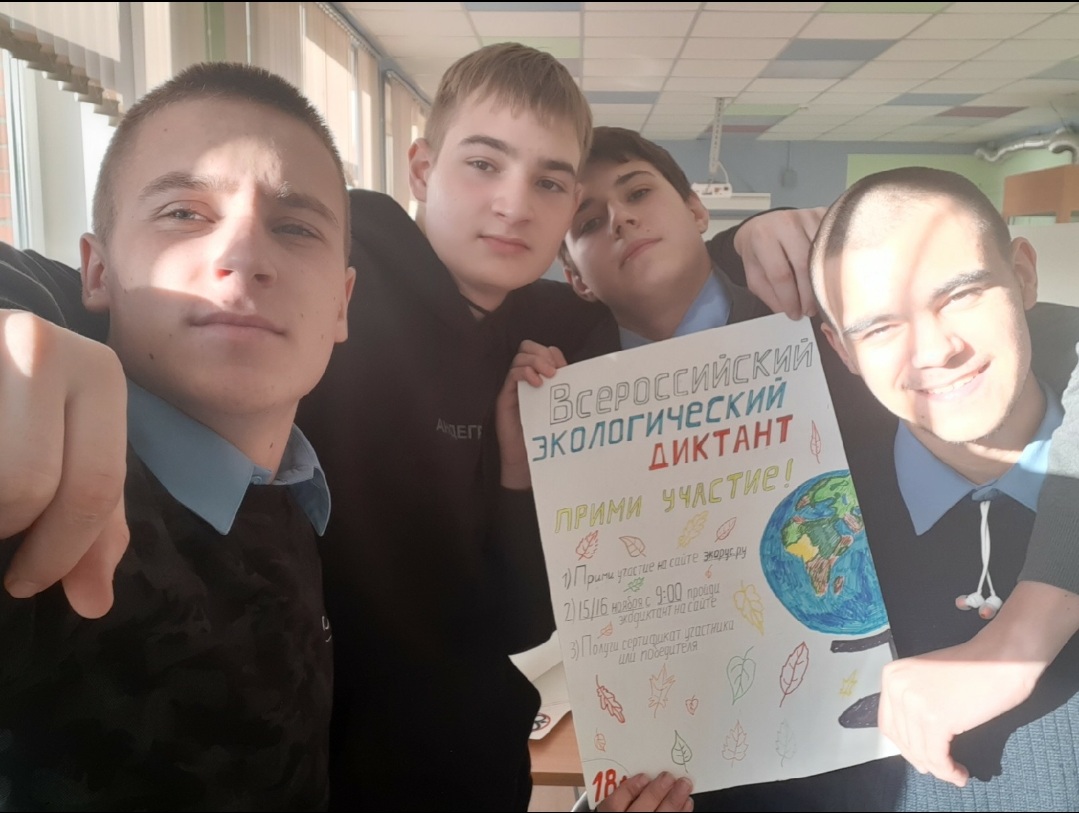 Всероссийский
экологический
диктант
прими участие!
1) Прими участие на сайте экорус.ру
2) 15/16 ноября с 9:00 пройди
экодиктант на сайте
3) Получи сертификат участники
или победителя
18+
АНДЕГР